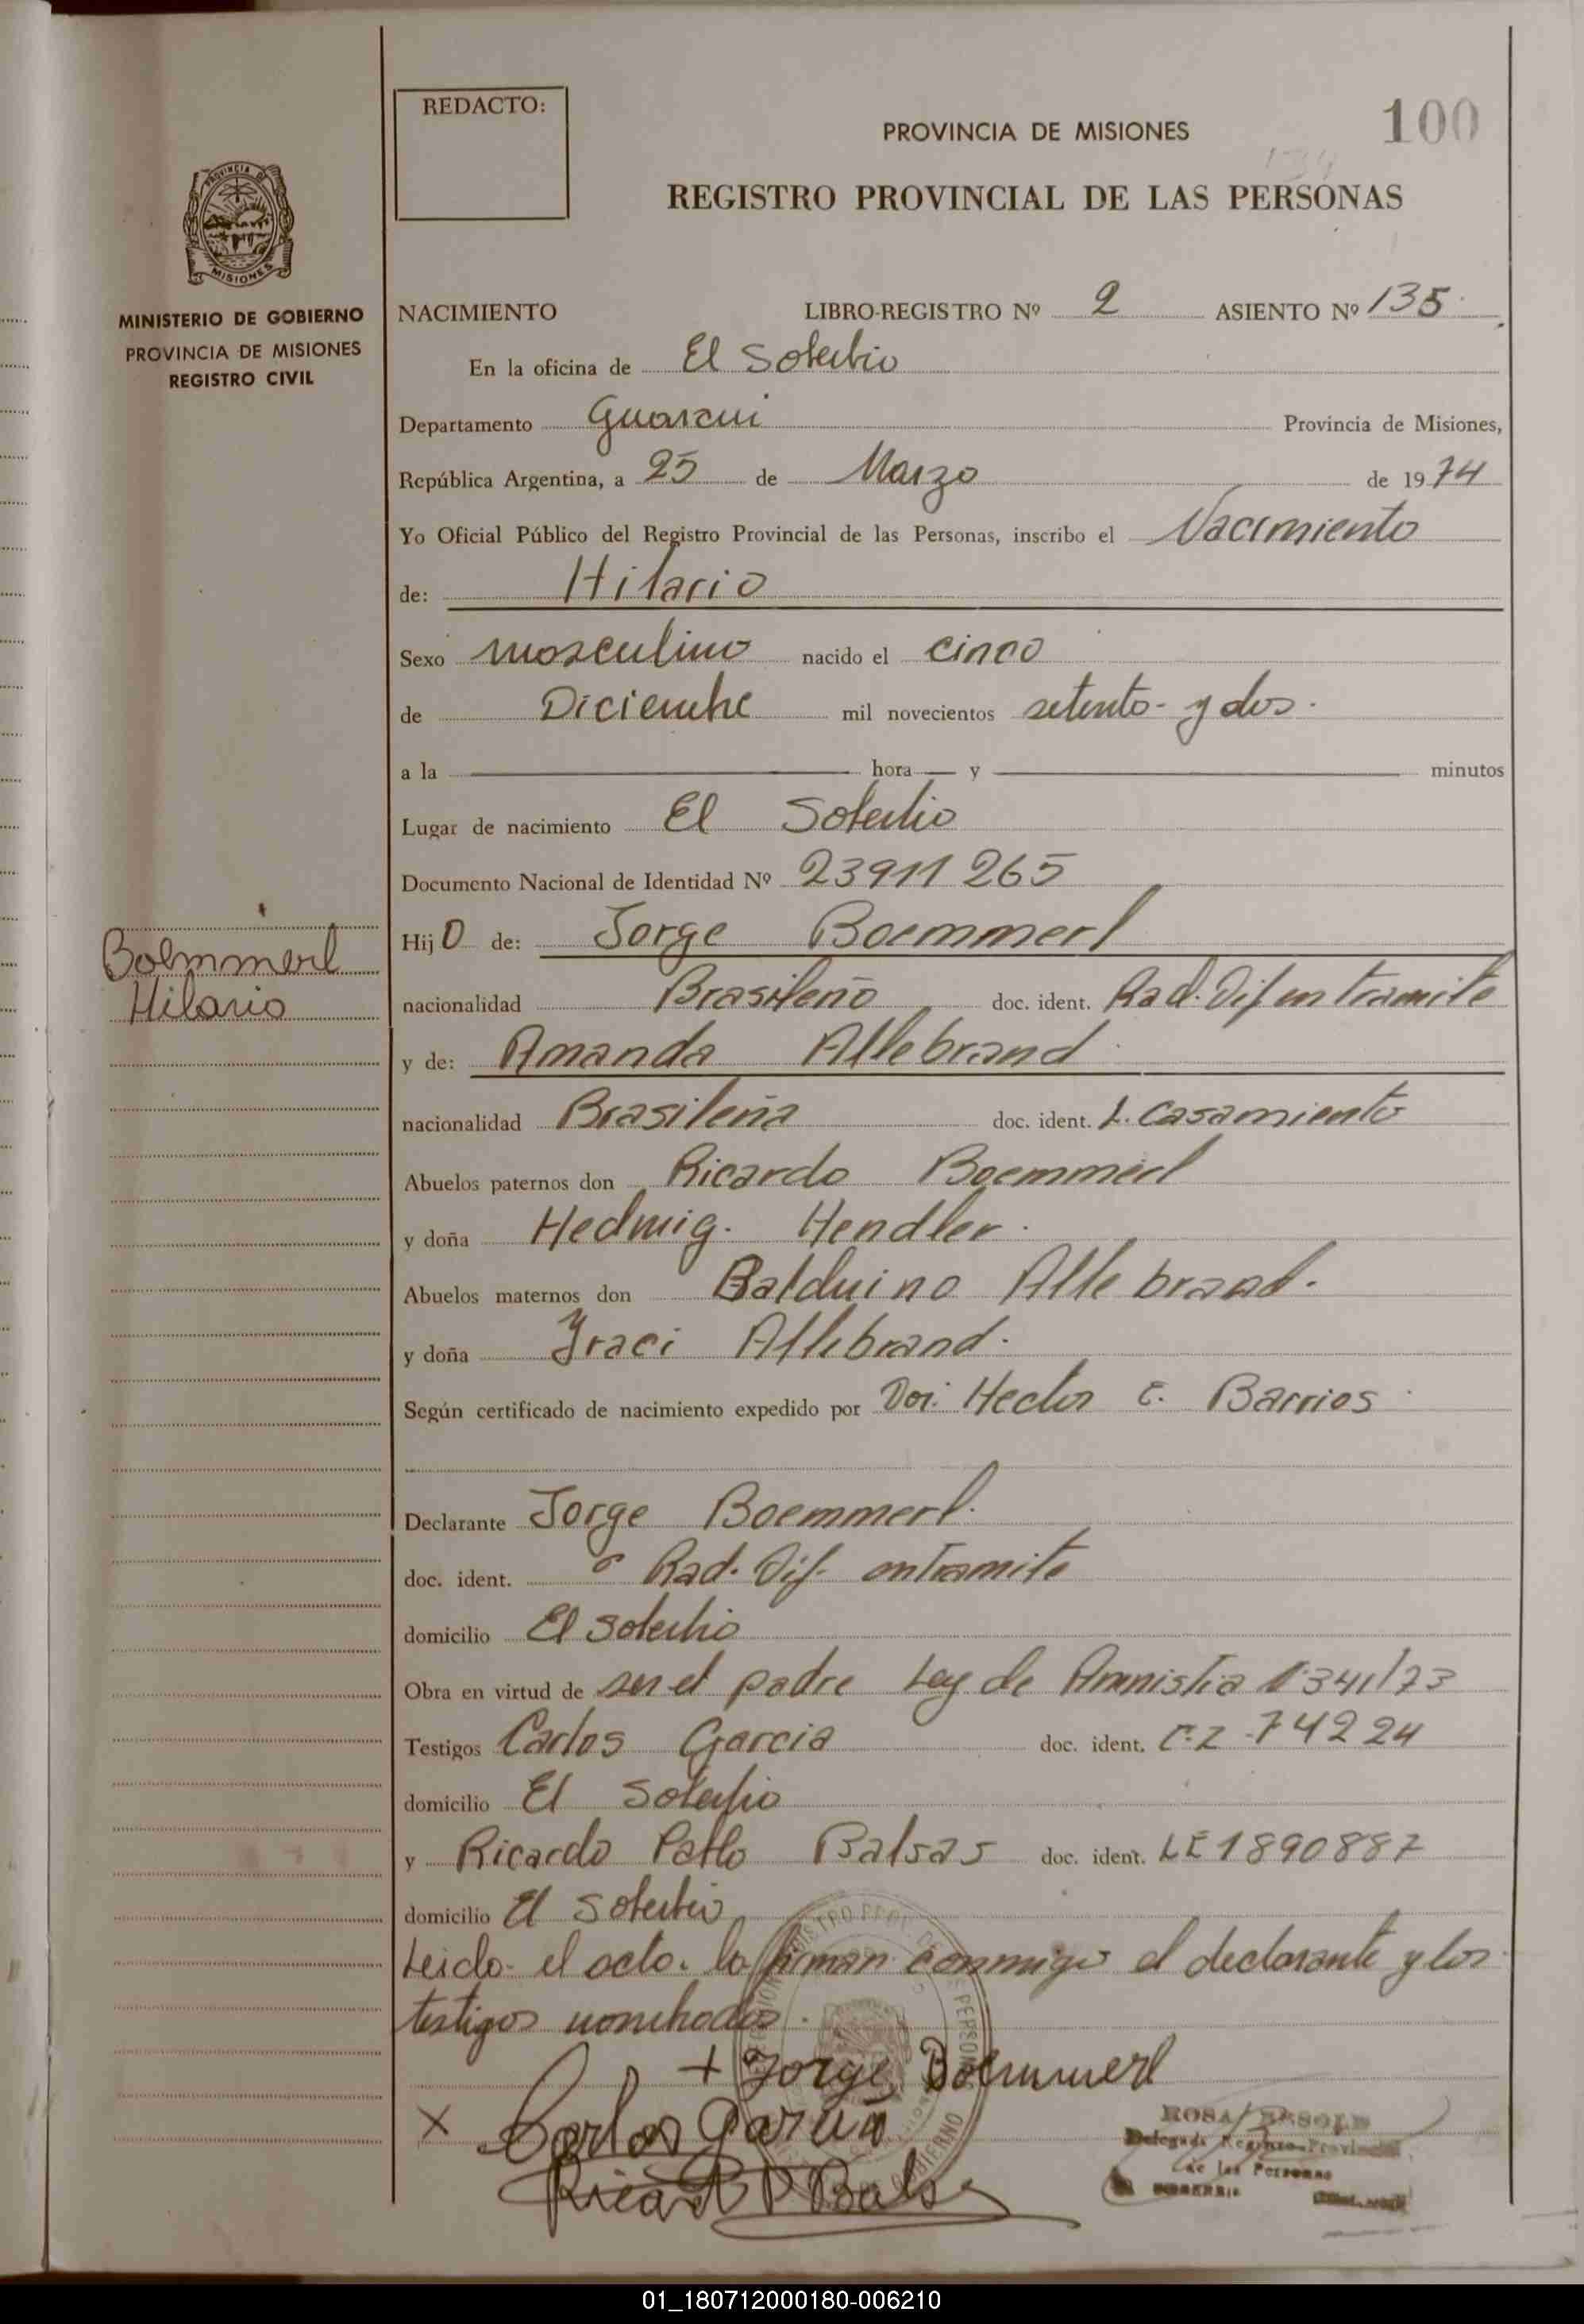 REDACTO:
PROVINCIA DE MISIONES
100
REGISTRO PROVINCIAL DE LAS PERSONAS
PROVINCIA DE
MISIONES
MINISTERIO DE GOBIERNO
PROVINCIA DE MISIONES
REGISTRO CIVIL
NACIMIENTO LIBRO-REGISTRO Nº 2 ASIENTO Nº 135
En la oficina de El Soberbio
Departamento Guarani Provincia de Misiones,
República Argentina, a 25 de Marzo de 1974
Yo Oficial Público del Registro Provincial de las Personas, inscribo el Nacimiento
de: Hilario
Sexo masculino nacido el cinco
de Diciembre mil novecientos setenta y dos.
a la hora y minutos
Lugar de nacimiento El Soberbio
Documento Nacional de Identidad Nº 23911265
Hijo de: Jorge Boemmerl
Boemmerl
Hilario
nacionalidad Brasileño doc. ident. Rad. Dif en tramite
y de: Amanda Allebrand
nacionalidad Brasileña doc. ident. L. Casamiento
Abuelos paternos don Ricardo Boemmerl
y doña Hedwig. Hendler.
Abuelos maternos don Balduino Allebrand.
y doña Iraci Allebrand.
Según certificado de nacimiento expedido por Hector C. Barrios
Declarante Jorge Boemmerl.
doc. ident. Rad. Dif. en tramite
domicilio El Soberbio
Obra en virtud de ser el padre Ley de Amnistia 341/73
Testigos Carlos Garcia doc. ident. 74224
domicilio El Soberbio
y Ricardo Pablo Balsas doc. ident. LE 1890887
domicilio El Soberbio
Leido el acto. la firman conmigo el declarante y los
testigos nombrados.
+ Jorge Boemmerl
x Carlos Garcia
Ricardo P Balsas
Delegada Registro Provincial
de las Personas
01_180712000180-006210